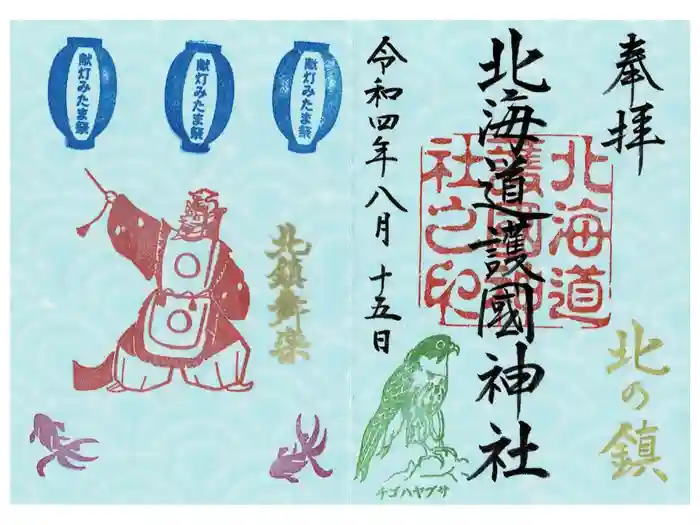 奉拝
北海道護國神社
北海道
護國神
社之印
北の鎮
令和四年八月十五日
チゴハヤブサ
献灯みたま祭
献灯みたま祭
献灯みたま祭
北鎮舞楽